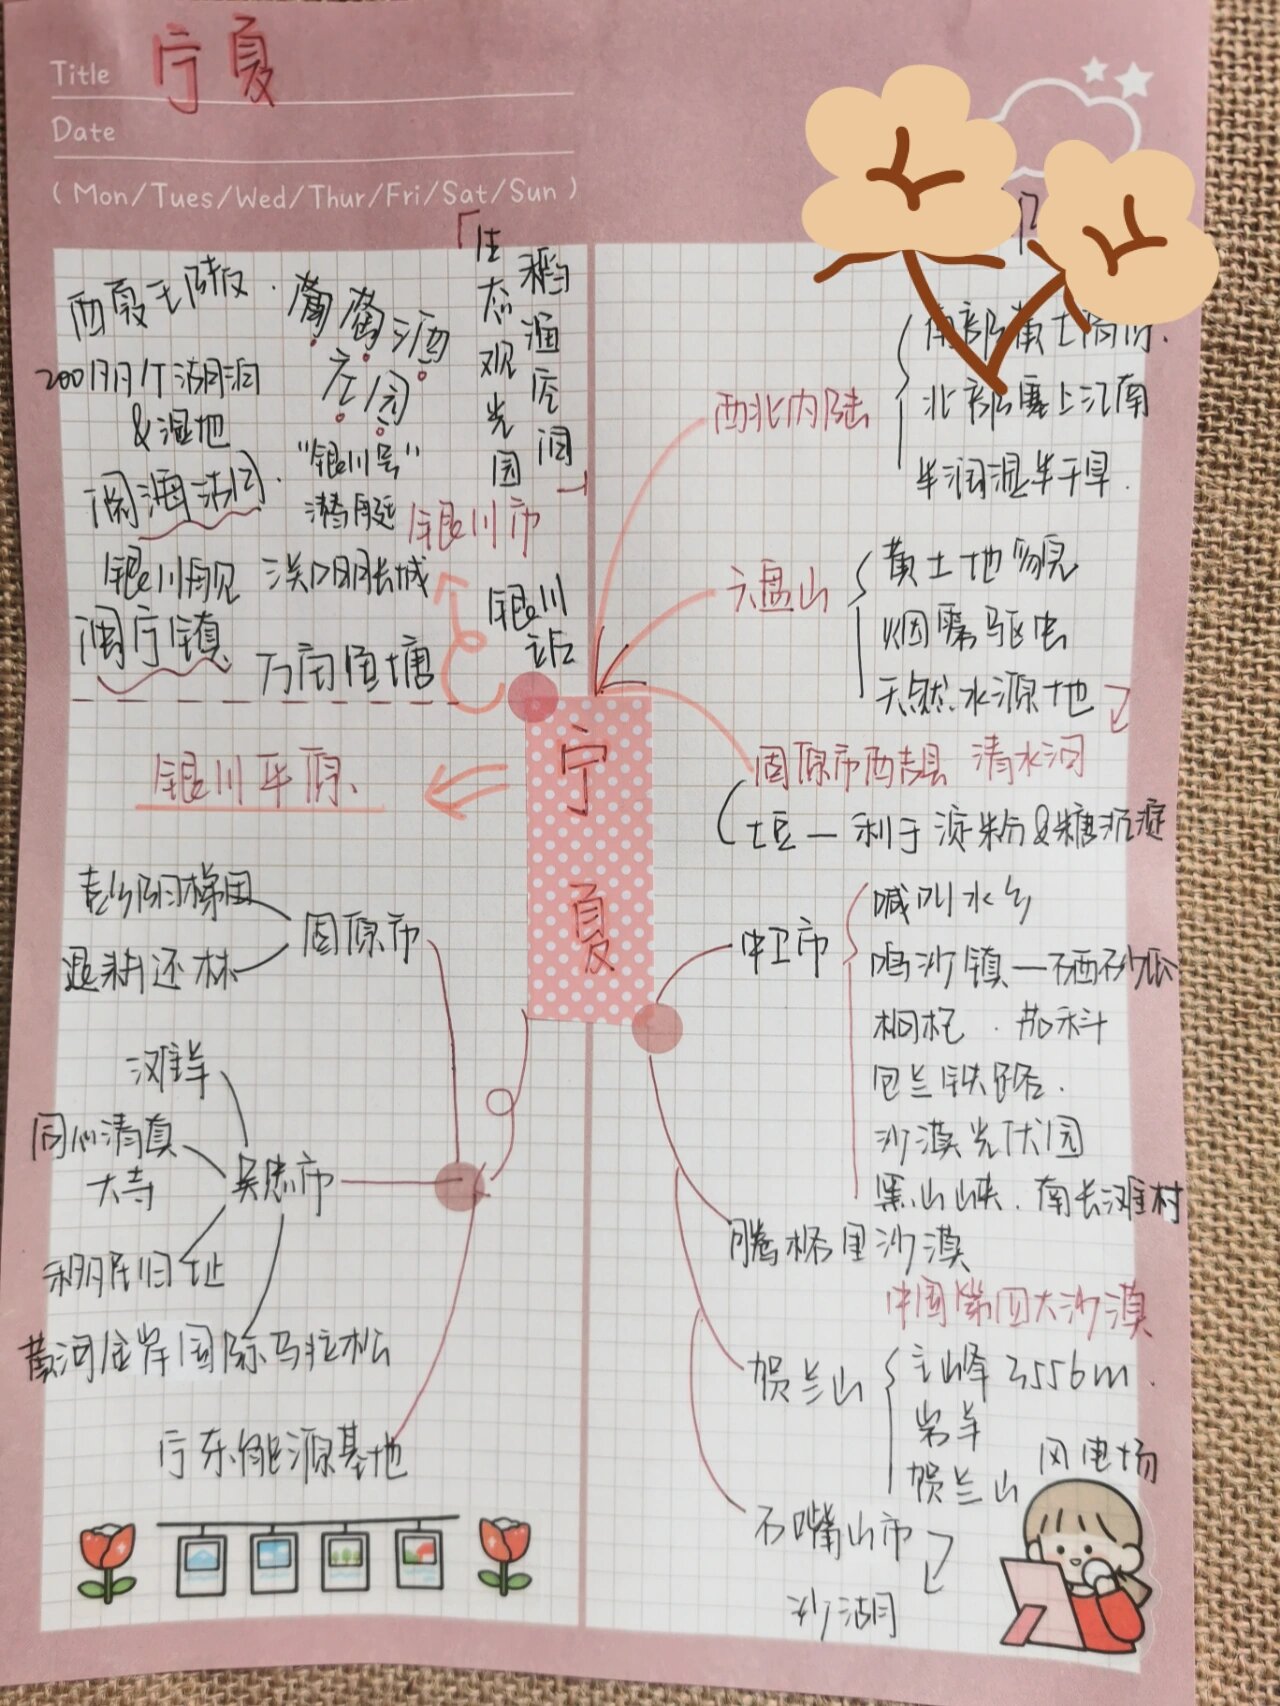 Title 宁夏
Date
(Mon/Tues/Wed/Thur/Fri/Sat/Sun)
西夏王陵
200个湖泊
&湿地
阅海
银川舰
闽宁镇
葡萄酒
庄园
"银川号"
潜艇
关口明长城
万亩鱼塘
「生态观光园
稻渔空间」
银川市
银川
站
银川平原
宁夏
西北内陆
南部黄土高原.
北部塞上江南
半湿润半干旱.
六盘山
黄土地貌
烟雾驱虫
天然水源地
固原市西吉县 清水河
土豆—利于淀粉&糖沉淀
中卫市
喊叫水乡
鸣沙镇—硒砂瓜
枸杞.茄科
包兰铁路.
沙漠光伏园
黑山峡.南长滩村
腾格里沙漠
中国第四大沙漠
贺兰山
主峰3556m.
岩羊
贺兰山 风电场
石嘴山市
沙湖
固原市
彭阳梯田
退耕还林
吴忠市
滩羊
同心清真
大寺
移民旧址
黄河金岸国际马拉松
宁东能源基地